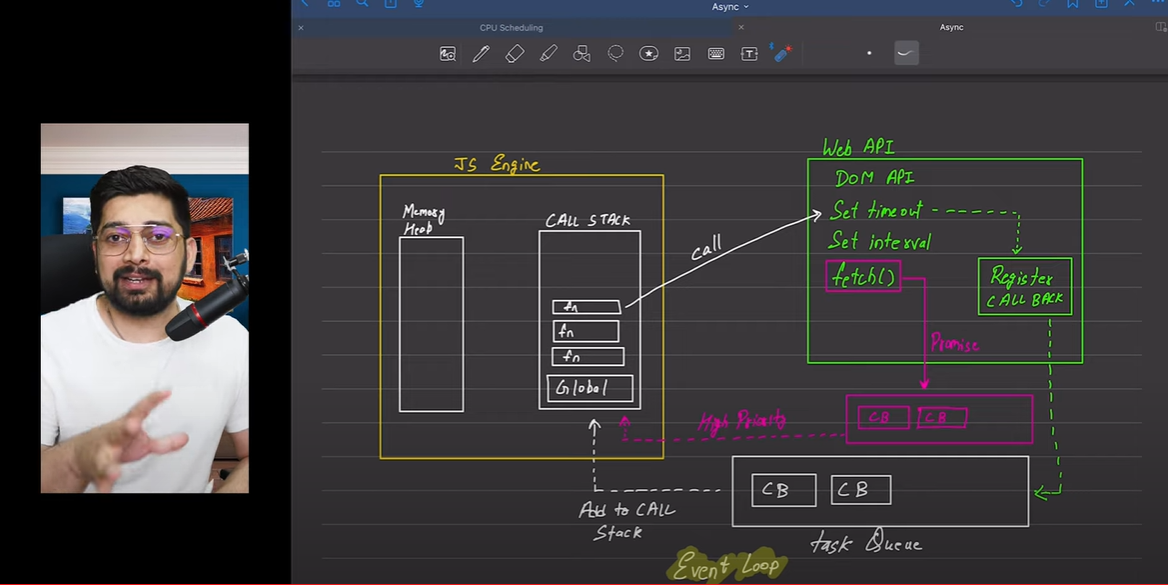 Async
CPU Scheduling
Async
JS Engine
Memory
Heab
CALL STACK
fn
fn
fn
Global
call
Web API
DOM API
Set timeout
Set interval
fetch()
Register
CALL BACK
Promise
CB
CB
High Priority
CB
CB
Add to CALL
Stack
task Queue
Event Loop